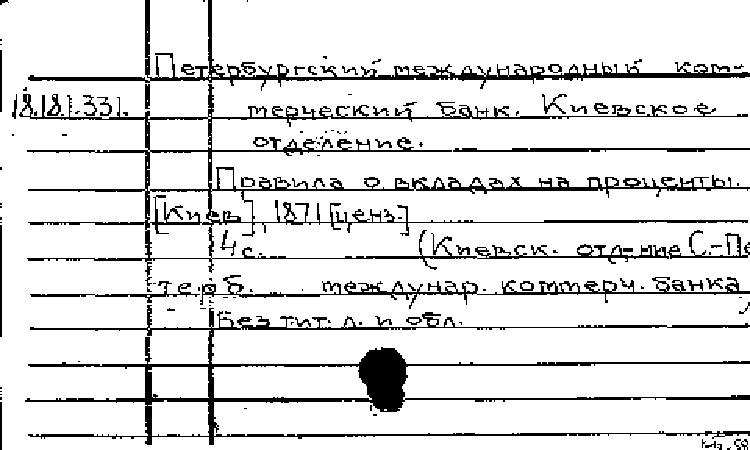 Петербургский международный ком-
18.181.331. мерческий банк. Киевское
отделение.
Правила о вкладах на проценты.
[Киев], 1871 [ценз.]
4 с. (Киевск. отд-ние С.-Пе
терб. междунар. коммерч. банка
Без тит. л. и обл.